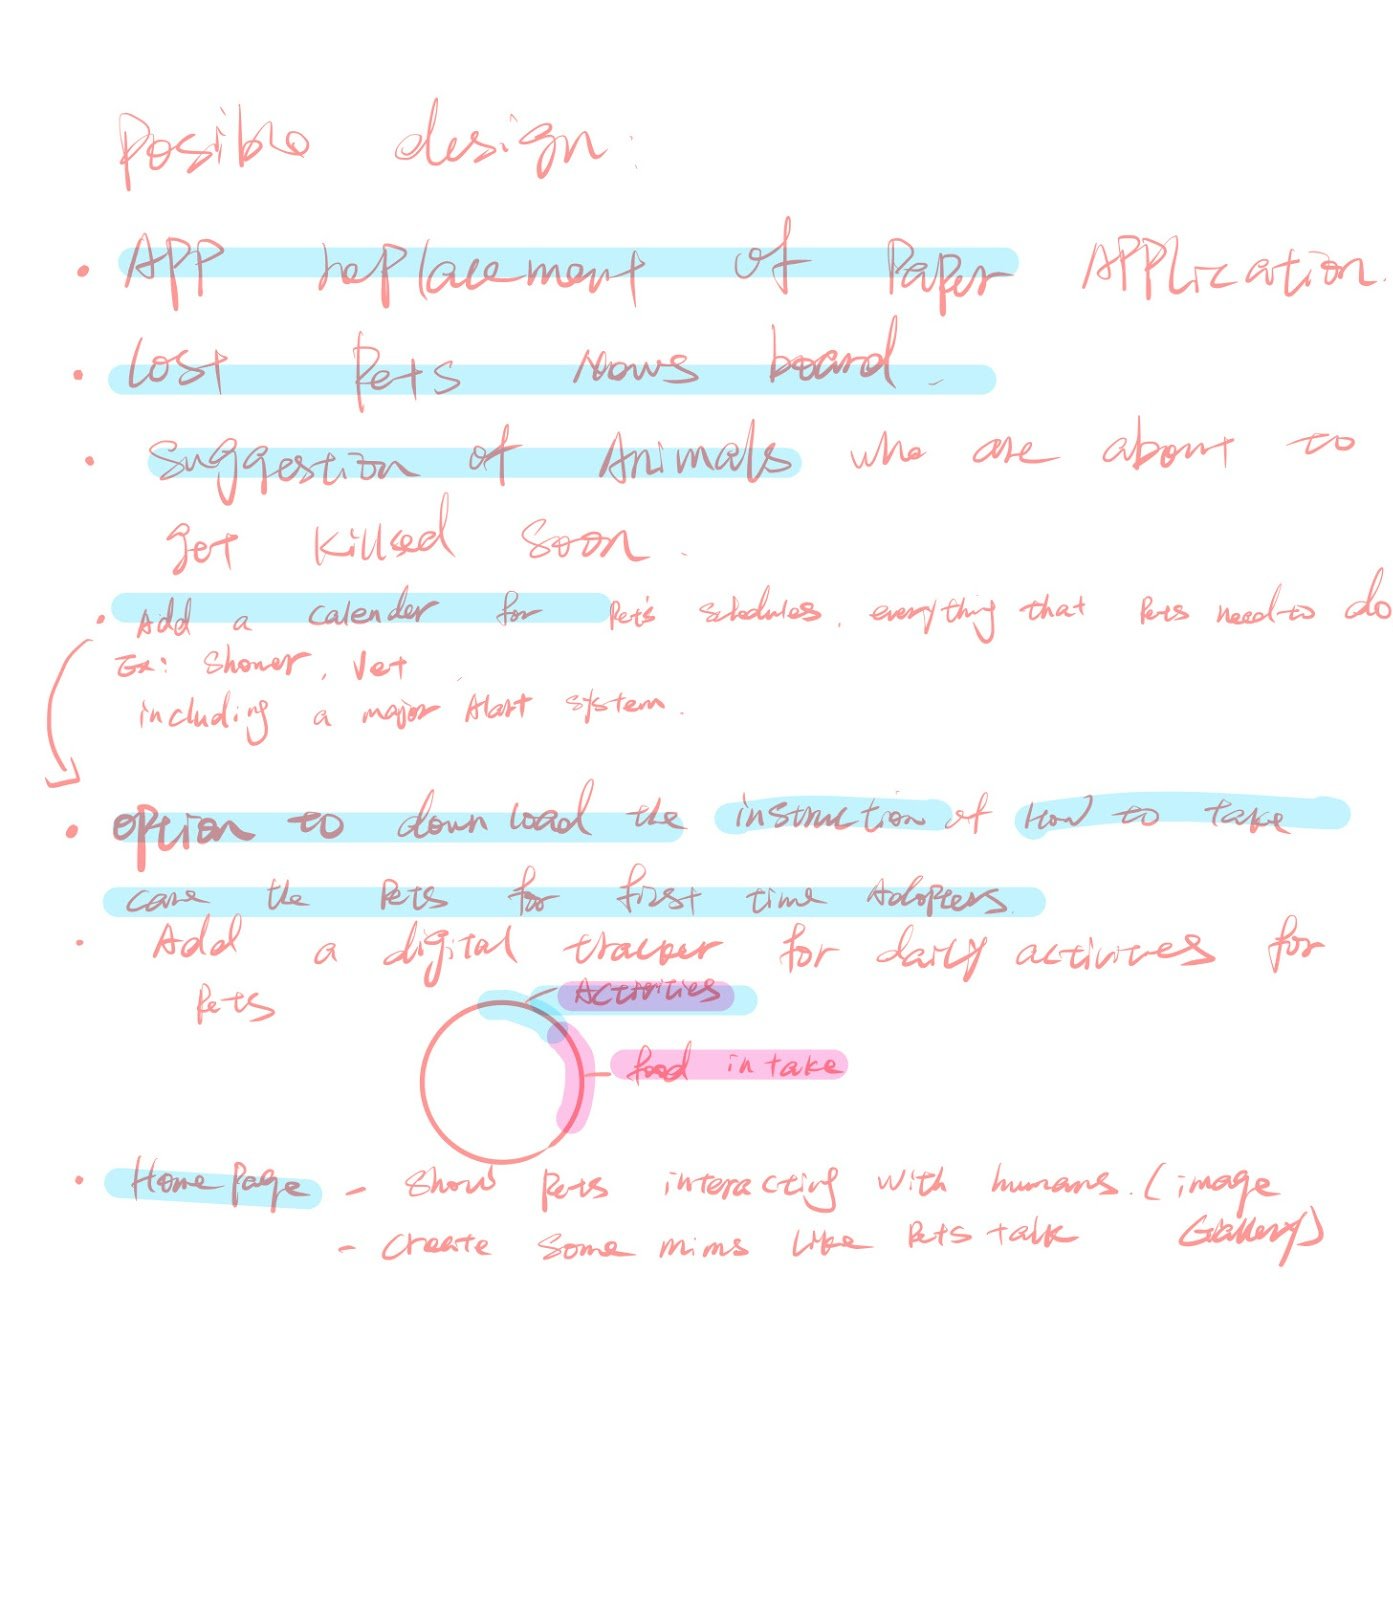 Posible design:
• APP replacement of Paper APPlication.
• Lost Pets News board.
• Suggestion of Animals who are about to
get killed soon.
• Add a calender for Pet's schedules, everything that Pets need to do
Ex: Shower, Vet.
including a major Alart system.
• option to download the instruction of How to take
care the Pets for first time Adopters.
• Add a digital tracker for daily activities for
Pets
Activities
food intake
• Home Page - Show Pets interacting with humans. (image
Gallery)
- Create some mims like Pets talk